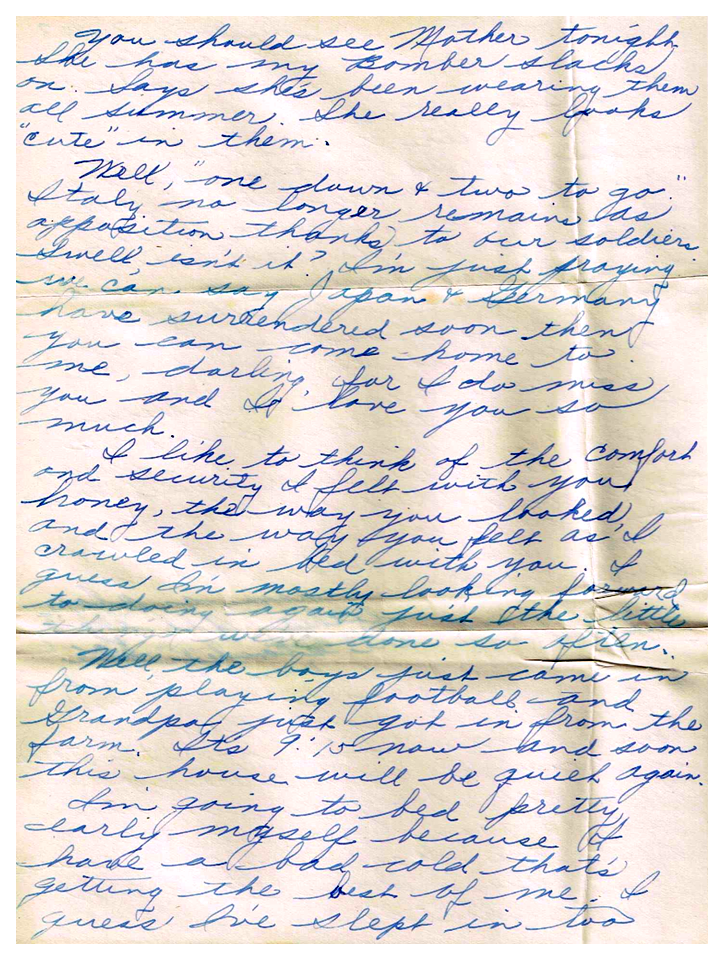 You should see Mother tonight,
She has my Bomber slacks
on. Says she's been wearing them
all summer. She really looks
"cute" in them.
Well, "one down & two to go."
Italy no longer remains as
opposition thanks to our soldiers.
Swell isn't it? I'm just praying
we can say Japan & Germany
have surrendered soon then
you can come home to
me, darling for I do miss
you and I love you so
much.
I like to think of the comfort
and security I felt with you
honey, the way you looked,
and the way you felt as I
crawled in bed with you. I
guess I'm mostly looking forward
to doing again just the little
things we've done so often.
Well, the boys just came in
from playing football and
Grandpa just got in from the
farm. Its 9:15 now and soon
this house will be quiet again.
I'm going to bed pretty
early myself because I
have a bad cold that's
getting the best of me. I
guess I've slept in too